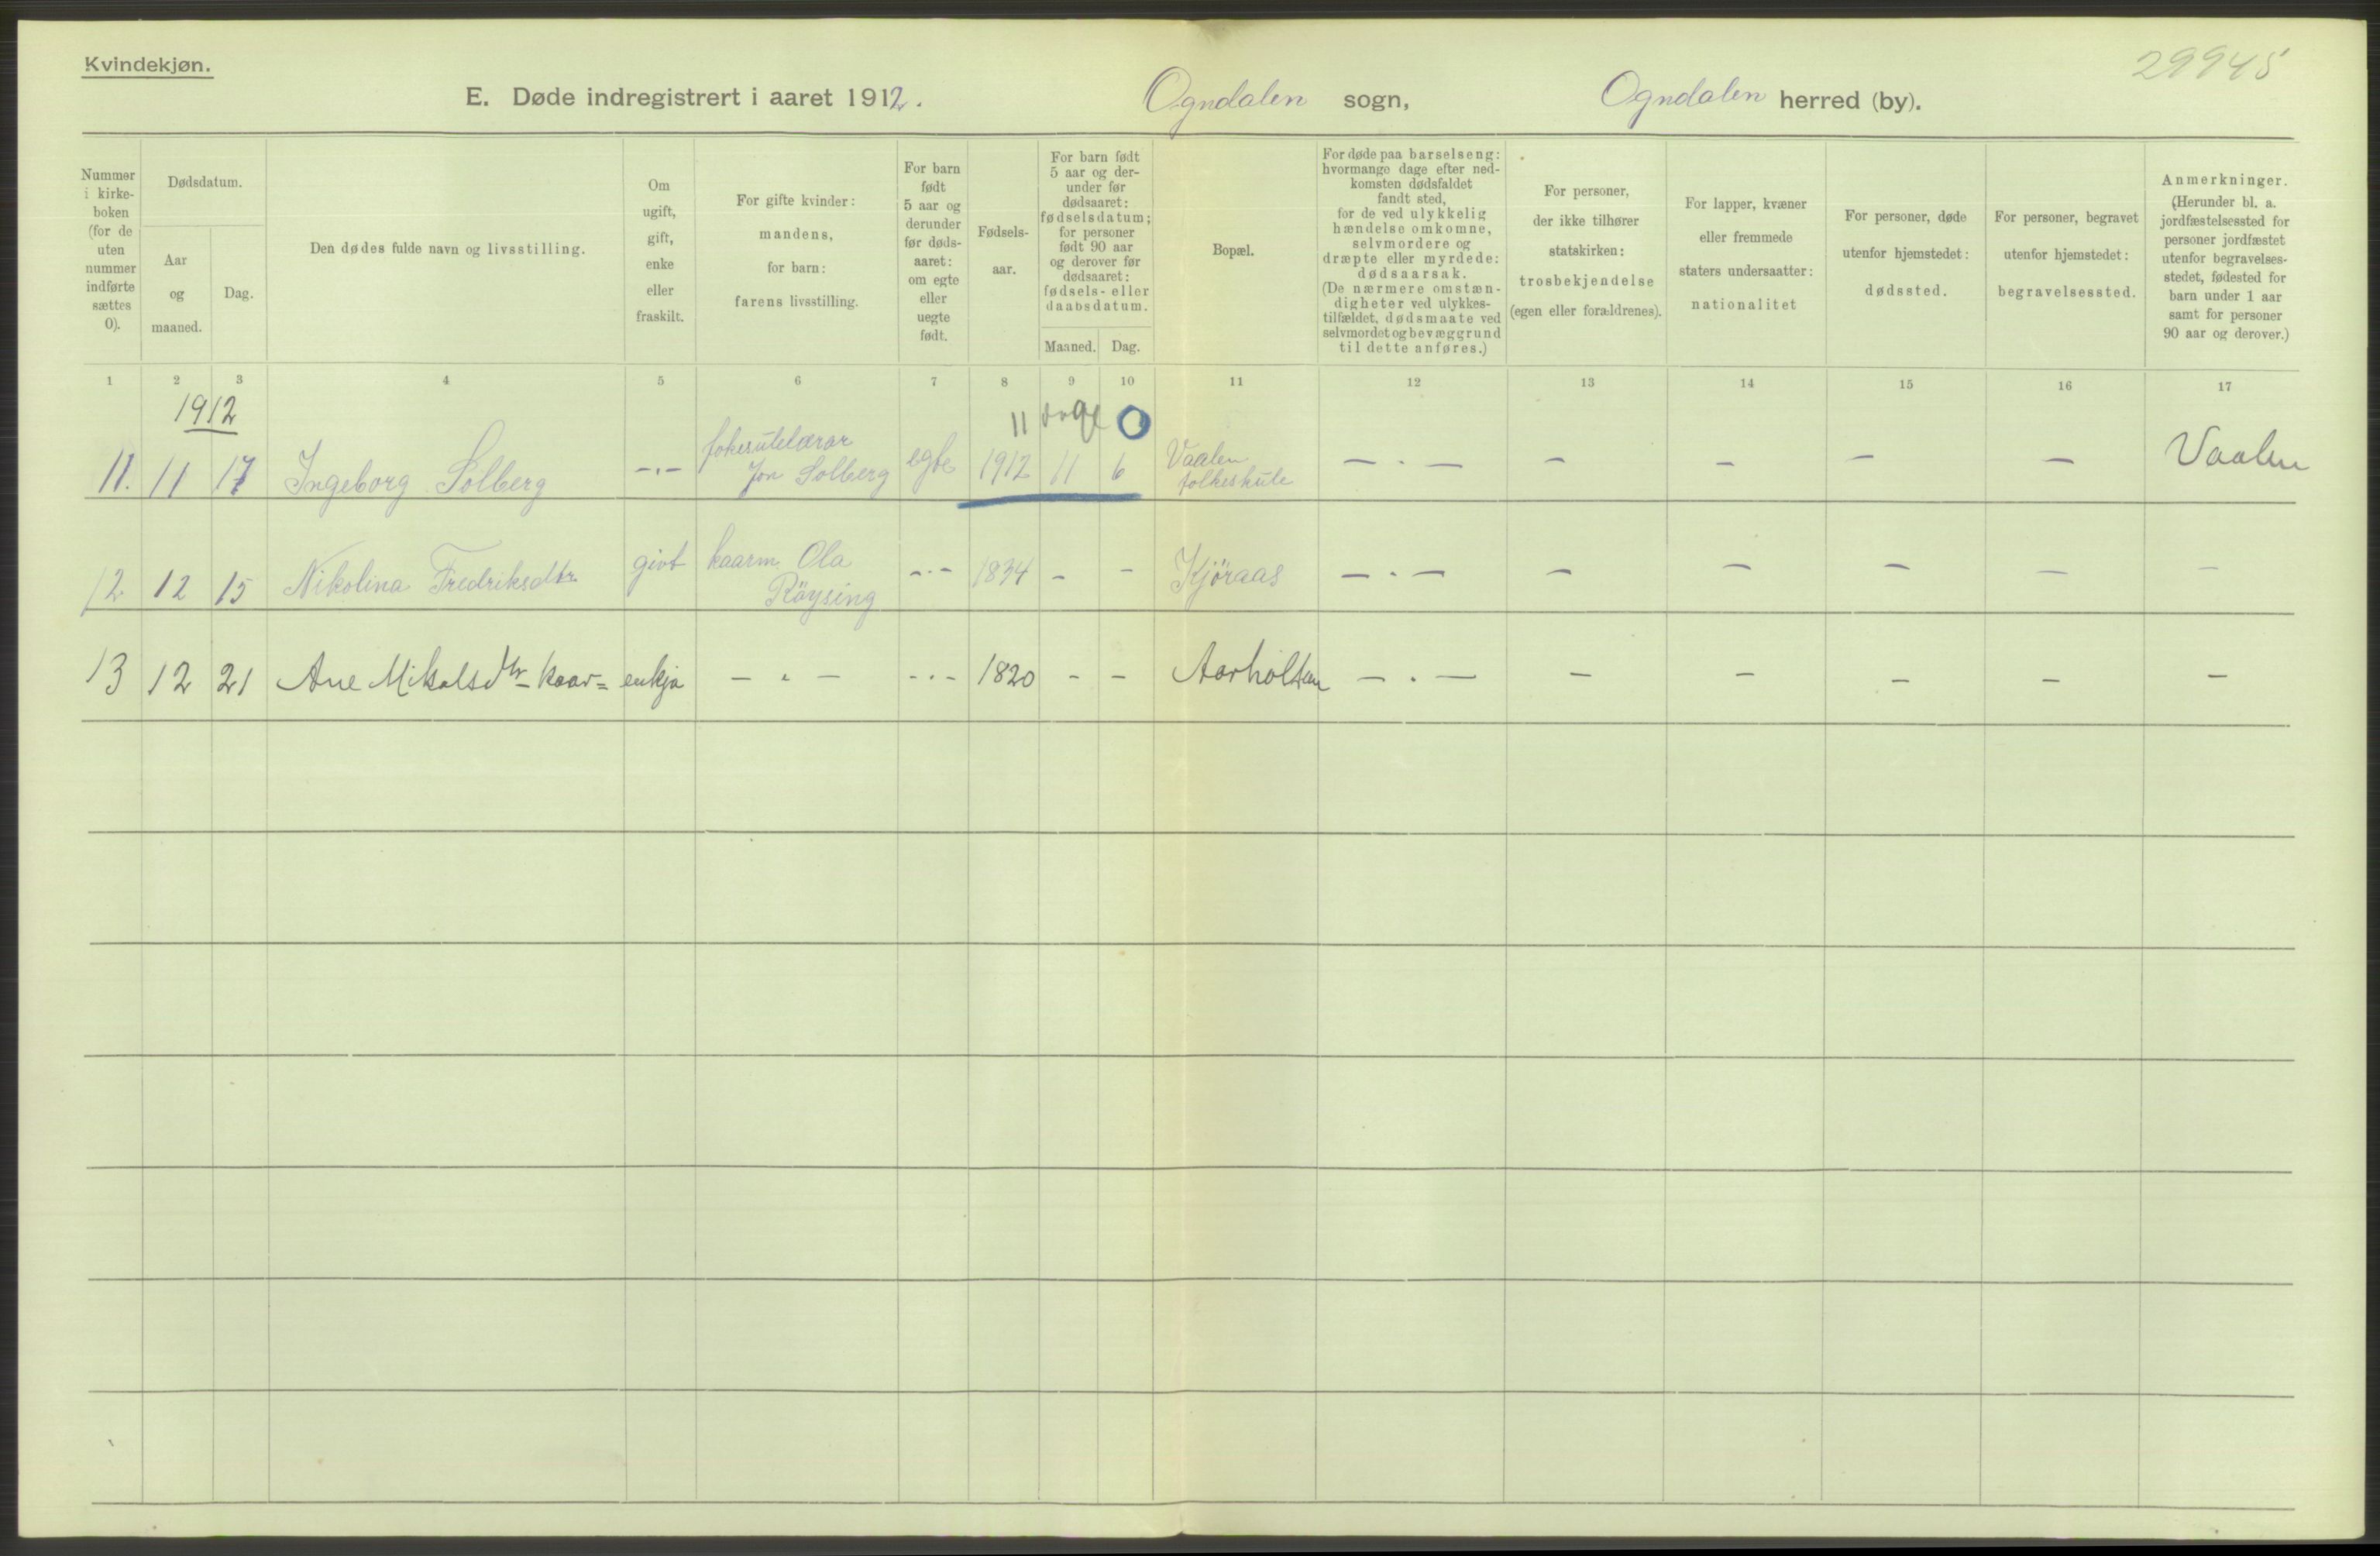 Kvindekjøn.
29945
E. Døde indregistrert i aaret 1912. Ogndalen sogn, Ogndalen herred (by).
Nummer i kirke-boken (for de uten nummer indførte sættes 0).
Dødsdatum.
Aar og maaned.
Dag.
Den dødes fulde navn og livsstilling.
Om ugift, gift, enke eller fraskilt.
For gifte kvinder: mandens, for barn: farens livsstilling.
For barn født 5 aar og derunder før døds-aaret: om egte eller uegte født.
Fødsels-aar.
For barn født 5 aar og der-under før dødsaaret: fødselsdatum; for personer født 90 aar og derover før dødsaaret: fødsels- eller daabsdatum.
Maaned. Dag.
Bopæl.
For døde paa barselseng: hvormange dage efter ned-komsten dødsfaldet fandt sted, for de ved ulykkelig hændelse omkomne, selvmordere og dræpte eller myrdede: dødsaarsak. (De nærmere omstæn-digheter ved ulykkes-tilfældet, dødsmaate ved selvmordet og bevæggrund til dette anføres.)
For personer, der ikke tilhører statskirken: trosbekjendelse (egen eller forældrenes).
For lapper, kvæner eller fremmede staters undersaatter: nationalitet
For personer, døde utenfor hjemstedet: dødssted.
For personer, begravet utenfor hjemstedet: begravelsessted.
Anmerkninger. (Herunder bl. a. jordfæstelsessted for personer jordfæstet utenfor begravelses-stedet, fødested for barn under 1 aar samt for personer 90 aar og derover.)
1 2 3 4 5 6 7 8 9 10 11 12 13 14 15 16 17
1912
11 dage 0
11. 11 17 Ingeborg Solberg -"- Jon Solberg egte 1912 11 6 Vaalen folkeskule — . — — — — — Vaalen
12 12 15 Nikolina Fredriksdtr givt kaarm. Ola Röysing -.- 1834 - - Kjöraas — . — — — — — —
13 12 21 Ane Mikalsdtr kaar= enkja — . — -.- 1820 - - Aarholtan — . — — — — — —